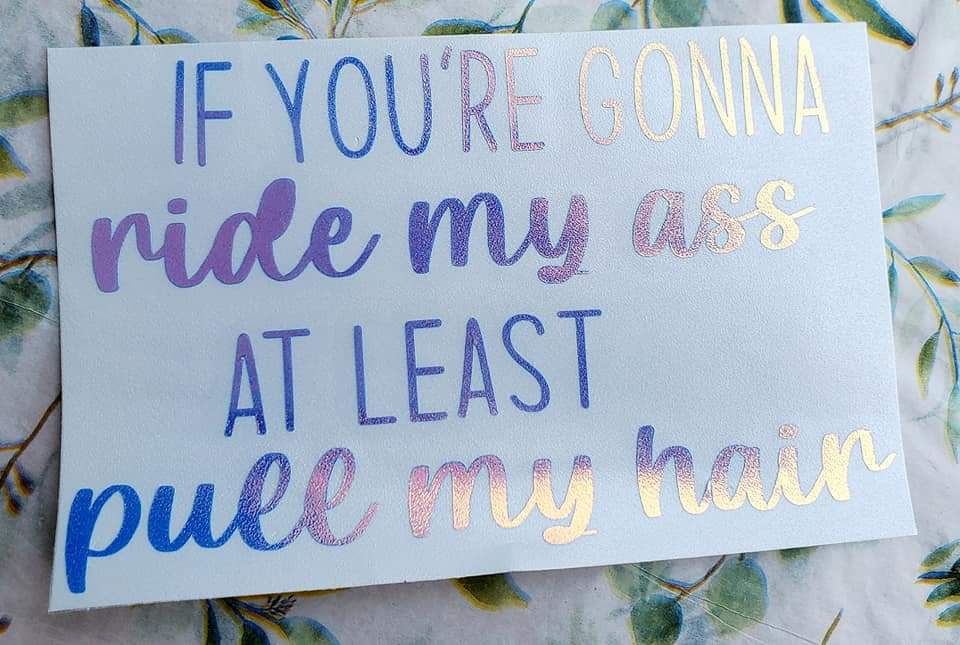 IF YOU'RE GONNA
ride my ass
AT LEAST
pull my hair